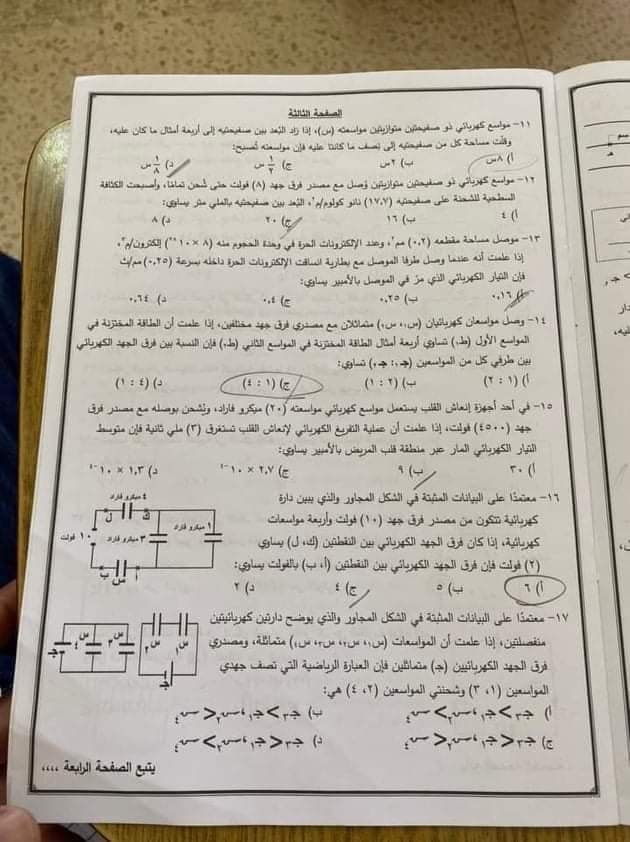 الصفحة الثالثة
١١- مواسع كهربائي ذو صفيحتين متوازيتين مواسعته (س)، إذا زاد البُعد بين صفيحتيه إلى أربعة أمثال ما كان عليه،
وقلّت مساحة كل من صفيحتيه إلى نصف ما كانتا عليه فإن مواسعته تُصبح:
أ) ٨س ب) ٢س ج) ١/٢ س د) ١/٨ س
١٢- مواسع كهربائي ذو صفيحتين متوازيتين وُصل مع مصدر فرق جهد (٨) فولت حتى شُحن تمامًا، وأصبحت الكثافة
السطحية للشحنة على صفيحتيه (١٧,٧) نانو كولوم/م٢، البُعد بين صفيحتيه بالملي متر يساوي:
أ) ٤ ب) ١٦ ج) ٢٠ د) ٨
١٣- موصل مساحة مقطعه (٠,٢) مم٢، وعدد الإلكترونات الحرة في وحدة الحجوم منه (٨ × ١٠) إلكترون/م٣،
إذا علمت أنه عندما وصل طرفا الموصل مع بطارية انساقت الإلكترونات الحرة داخله بسرعة (٠,٢٥) مم/ث
فإن التيار الكهربائي الذي مرّ في الموصل بالأمبير يساوي:
أ) ٠,١٦ ب) ٠,٢٥ ج) ٠,٤ د) ٠,٦٤
١٤- وصل مواسعان كهربائيان (س١، س٢) متماثلان مع مصدري فرق جهد مختلفين، إذا علمت أن الطاقة المختزنة في
المواسع الأول (ط١) تساوي أربعة أمثال الطاقة المختزنة في المواسع الثاني (ط٢) فإن النسبة بين فرق الجهد الكهربائي
بين طرفي كل من المواسعين (جـ١ : جـ٢) تساوي:
أ) (١ : ٢) ب) (٢ : ١) ج) (٤ : ١) د) (١ : ٤)
١٥- في أحد أجهزة إنعاش القلب يستعمل مواسع كهربائي مواسعته (٢٠) ميكرو فاراد، ويُشحن بوصله مع مصدر فرق
جهد (٤٥٠٠) فولت، إذا علمت أن عملية التفريغ الكهربائي لإنعاش القلب تستغرق (٣) ملي ثانية فإن متوسط
التيار الكهربائي المار عبر منطقة قلب المريض بالأمبير يساوي:
أ) ٣٠ ب) ٩ ج) ٢,٧ × ١٠ د) ١,٣ × ١٠
١٦- معتمدًا على البيانات المثبتة في الشكل المجاور والذي يبين دارة
كهربائية تتكون من مصدر فرق جهد (١٠) فولت وأربعة مواسعات
كهربائية، إذا كان فرق الجهد الكهربائي بين النقطتين (ك، ل) يساوي
(٢) فولت فإن فرق الجهد الكهربائي بين النقطتين (أ، ب) بالفولت يساوي:
أ) ٦ ب) ٥ ج) ٤ د) ٢
٤ ميكرو فاراد
ك ل
١ ميكرو فاراد
٣ ميكرو فاراد
١٠ فولت
أ س ب
١٧- معتمدًا على البيانات المثبتة في الشكل المجاور والذي يوضح دارتين كهربائيتين
منفصلتين، إذا علمت أن المواسعات (س١، س٢، س٣، س٤) متماثلة، ومصدري
فرق الجهد الكهربائيين (جـ) متماثلين فإن العبارة الرياضية التي تصف جهدي
المواسعين (١، ٣) وشحنتي المواسعين (٢، ٤) هي:
س١ س٢ جـ
س٣ س٤ جـ
يتبع الصفحة الرابعة ،،،،